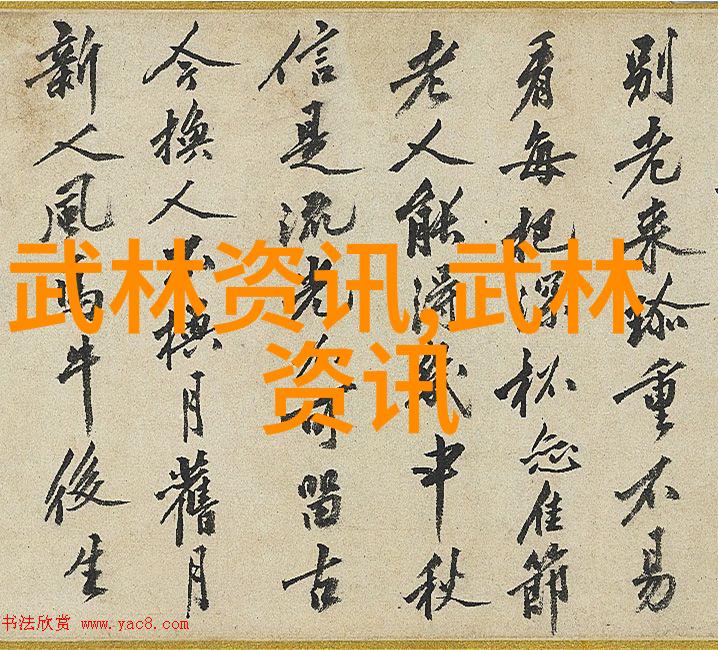 别老来珍重不易
看每把深杯佳節
老人能得幾中秋
信是流光不可留古
今換人不換月舊月
新人風馬牛後生
武林资讯,武林
资讯
书法欣赏 www.yac8.com